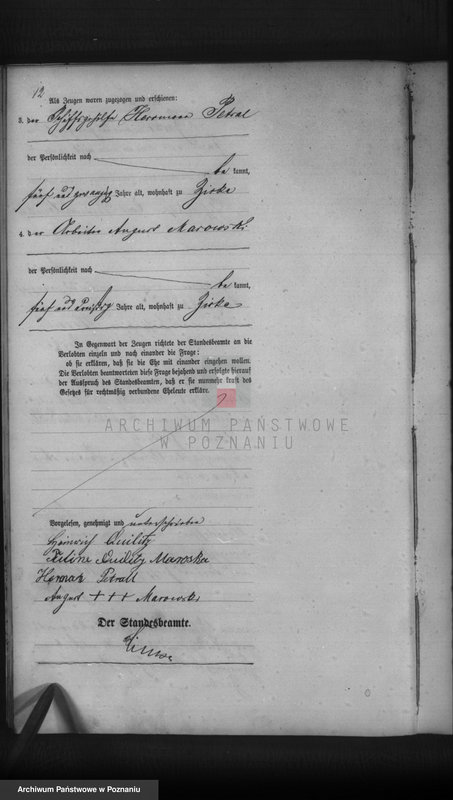 12
Als Zeugen waren zugezogen und erschienen:
3. der Schiffsgehilfe Herrmann Petral
der Persönlichkeit nach
be kannt,
fünf und zwanzig Jahre alt, wohnhaft zu Zirke
4. der Arbeiter August Marowski
der Persönlichkeit nach
be kannt,
fünf und dreißig Jahre alt, wohnhaft zu Zirke
In Gegenwart der Zeugen richtete der Standesbeamte an die
Verlobten einzeln und nach einander die Frage:
ob sie erklären, daß sie die Ehe mit einander eingehen wollen.
Die Verlobten beantworteten diese Frage bejahend und erfolgte hierauf
der Ausspruch des Standesbeamten, daß er sie nunmehr kraft des
Gesetzes für rechtmäßig verbundene Eheleute erkläre.
ARCHIWUM PAŃSTWOWE
W POZNANIU
Vorgelesen, genehmigt und unterschrieben
Heinrich Quilitz
Quilitz Maroska
Herman Petrall
August + + + Marowski
Der Standesbeamte.
Archiwum Państwowe w Poznaniu